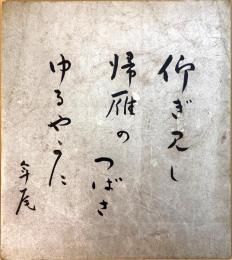 仰ぎ見し
帰雁の
つばさ
ゆるやかに
年尾